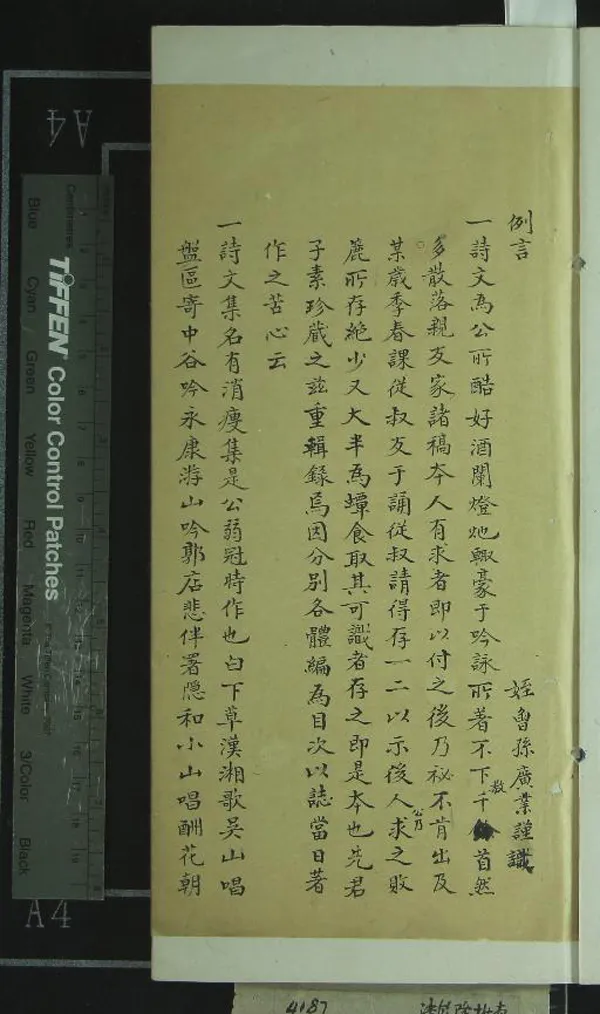 例言
姪曾孫廣業謹識
一詩文為公所酷好酒闌燈灺輙豪于吟詠所著不下千數首然
多散落親友家諸稿本人有求者即以付之後乃祕不肯出及
某歲季春課從叔友于誦從叔請得存一二以示後人公乃求之敗
簏所存絶少又大半為蟫食取其可識者存之即是本也先君
子素珍藏之兹重輯錄焉因分別各體編為目次以誌當日著
作之苦心云
一詩文集名有消瘦集是公弱冠時作也白下草漢湘歌吳山唱
盤區寄中谷吟永康游山吟郭店悲伴署隠和小山唱酬花朝
A4
TIFFEN Color Control Patches
Centimetres
Blue Cyan Green Yellow Red Magenta White 3/Color Black
A4
4187